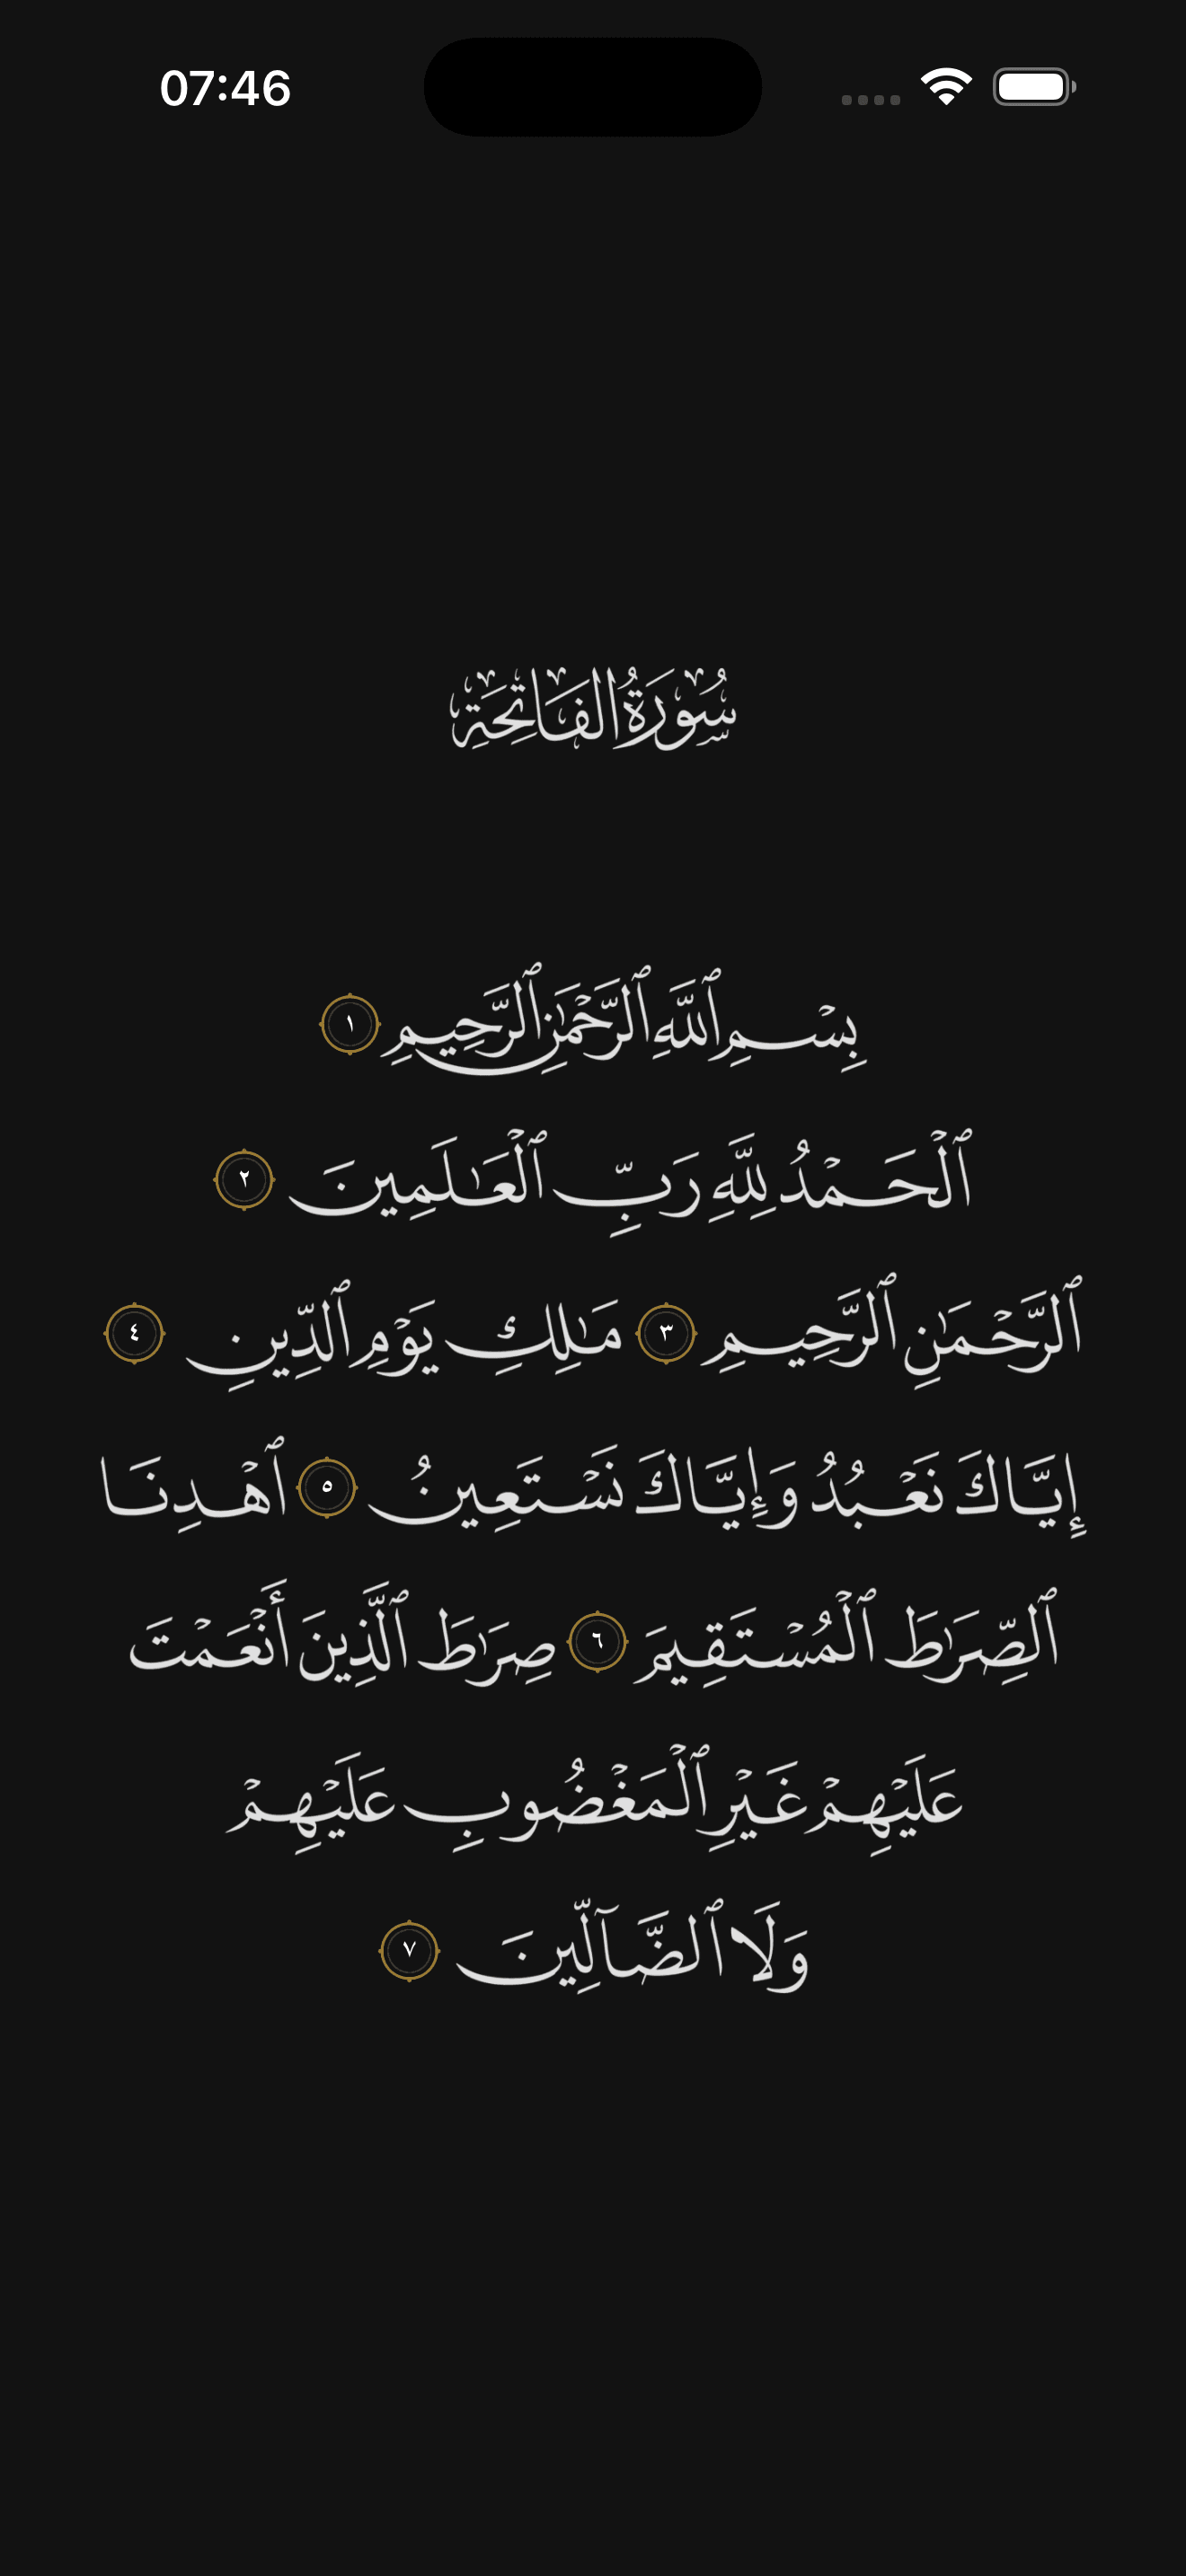 07:46
سُورَةُ الفَاتِحَةِ
بِسۡمِ ٱللَّهِ ٱلرَّحۡمَٰنِ ٱلرَّحِيمِ ١
ٱلۡحَمۡدُ لِلَّهِ رَبِّ ٱلۡعَٰلَمِينَ ٢
ٱلرَّحۡمَٰنِ ٱلرَّحِيمِ ٣ مَٰلِكِ يَوۡمِ ٱلدِّينِ ٤
إِيَّاكَ نَعۡبُدُ وَإِيَّاكَ نَسۡتَعِينُ ٥ ٱهۡدِنَا
ٱلصِّرَٰطَ ٱلۡمُسۡتَقِيمَ ٦ صِرَٰطَ ٱلَّذِينَ أَنۡعَمۡتَ
عَلَيۡهِمۡ غَيۡرِ ٱلۡمَغۡضُوبِ عَلَيۡهِمۡ
وَلَا ٱلضَّآلِّينَ ٧